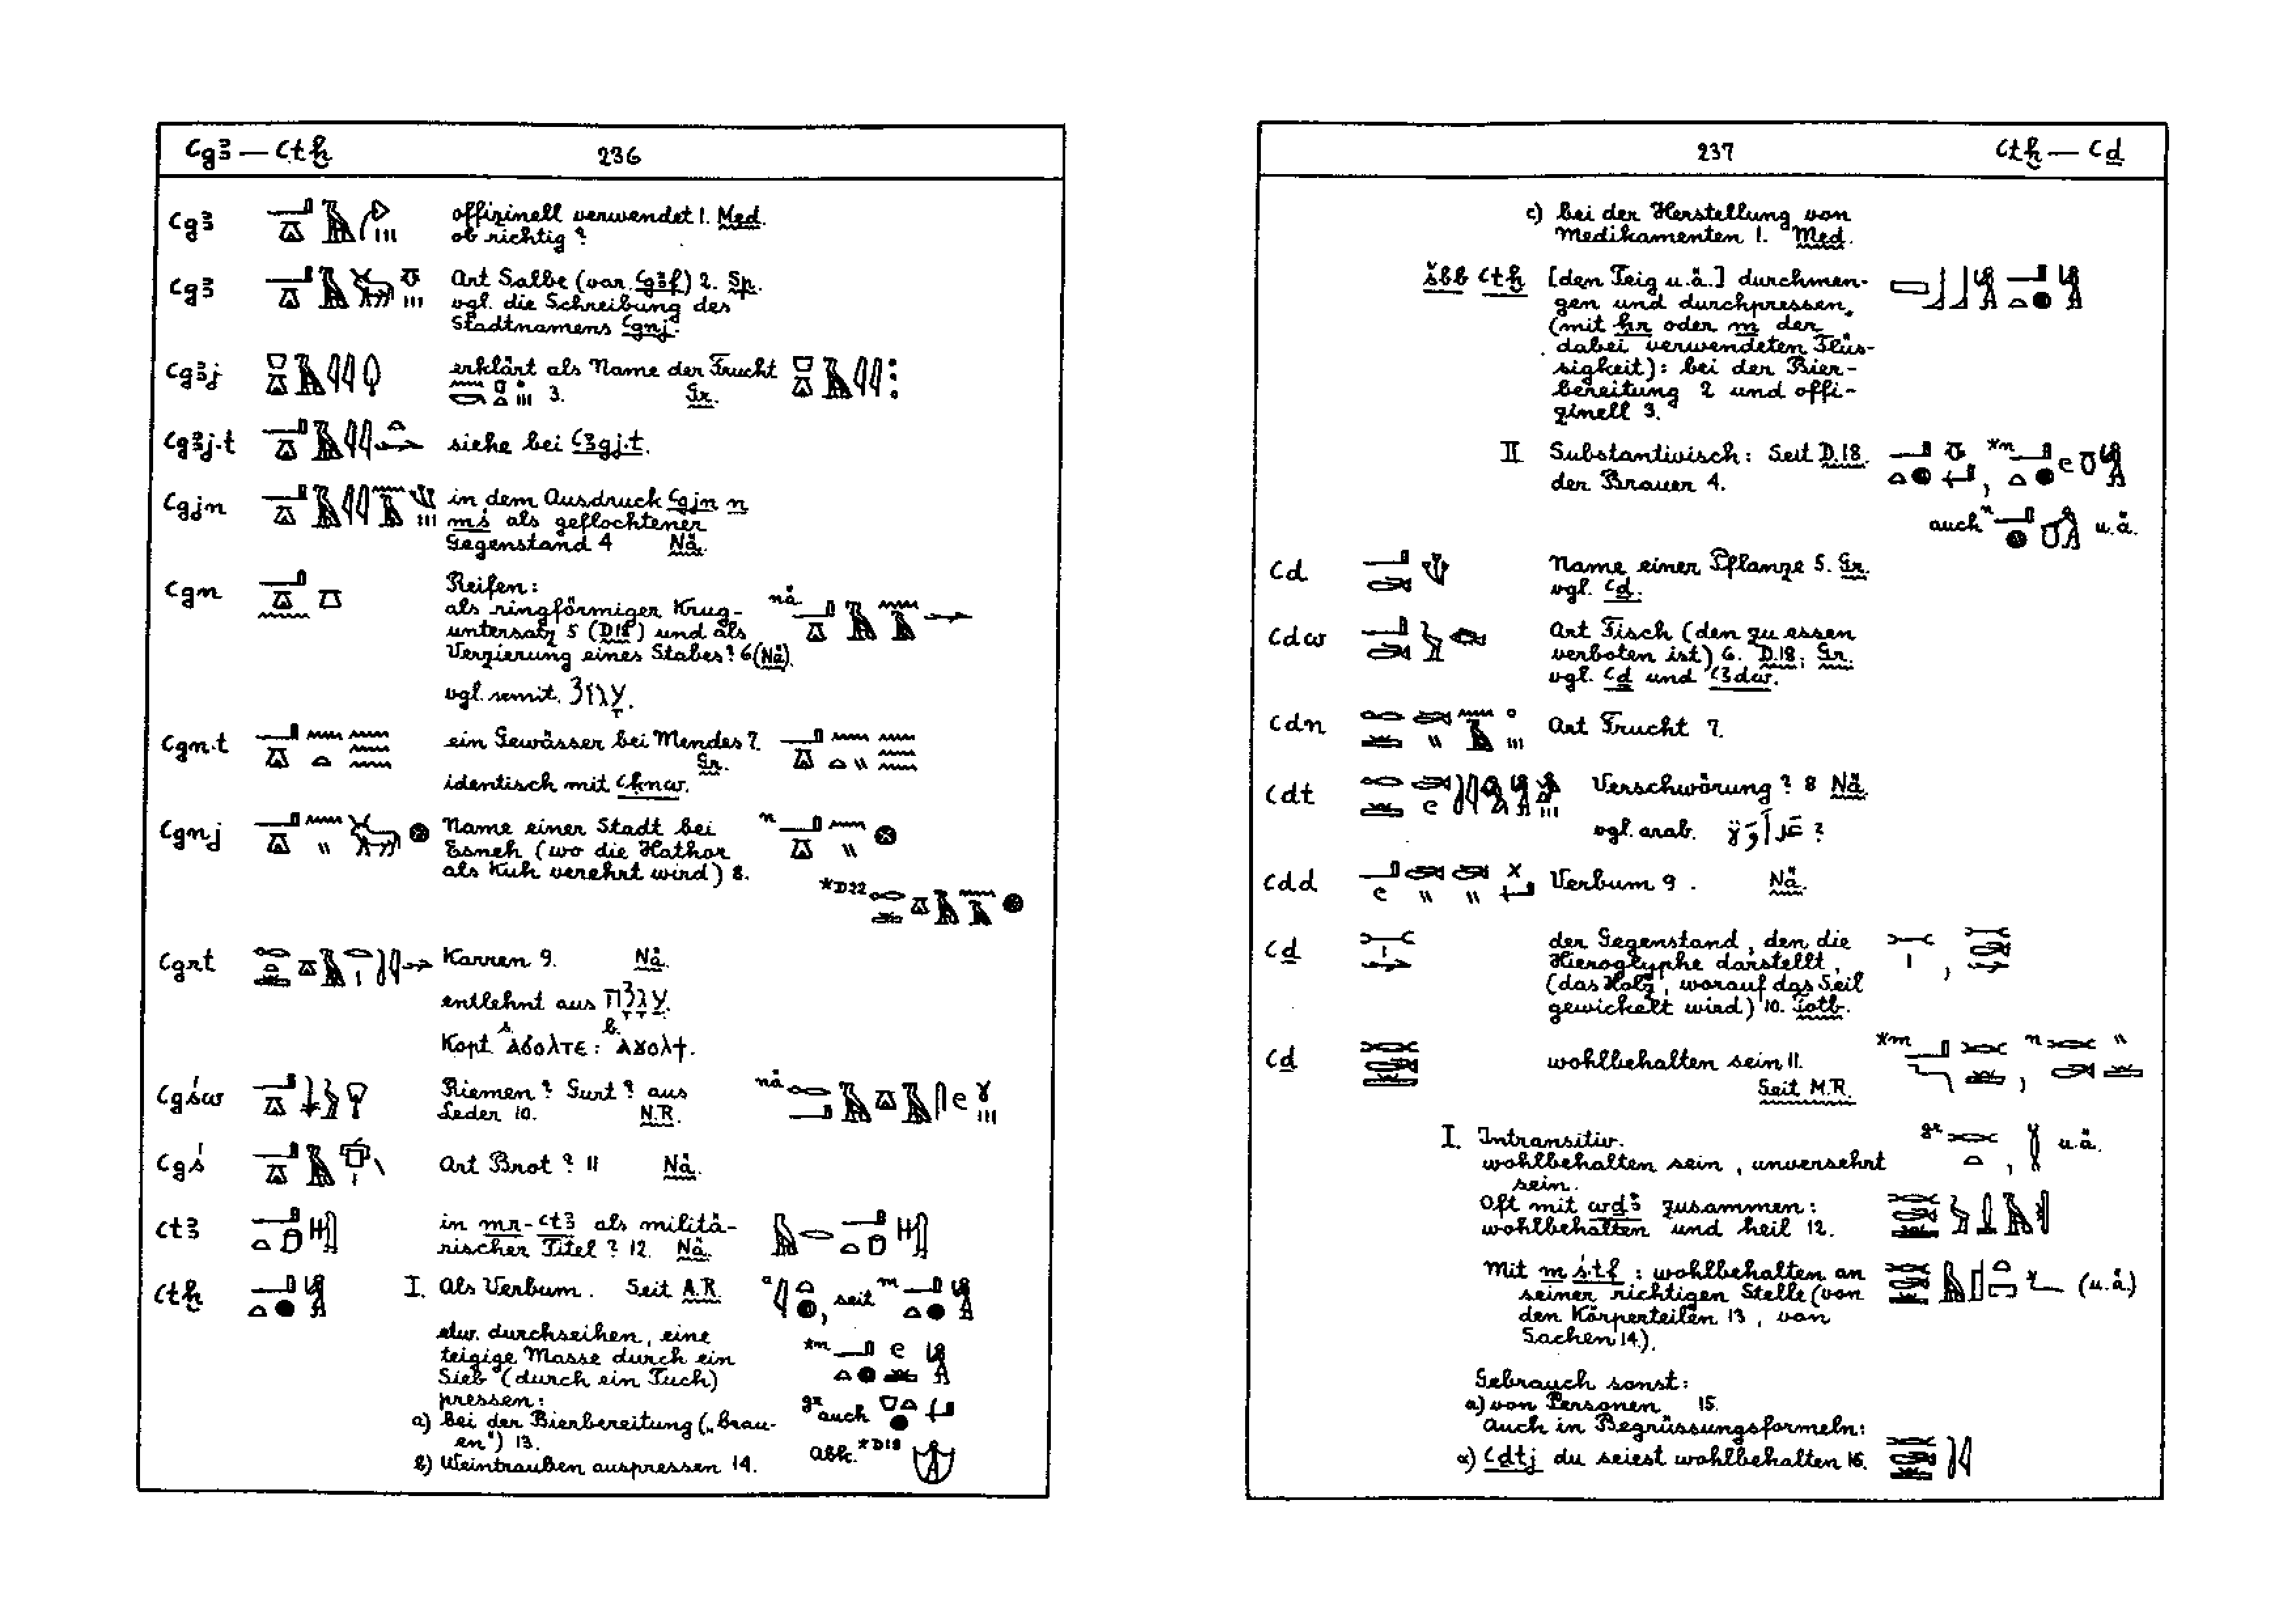 Cgꜣ — Ctḫ 236
Cgꜣ offizinell verwendet 1. Med.
ob richtig?
Cgꜣ Art Salbe (var. Cgꜣf) 2. Sp.
vgl. die Schreibung des
Stadtnamens Cgnj.
Cgꜣj erklärt als Name der Frucht
3. Gr.
Cgꜣj.t siehe bei Cꜣgj.t.
Cgjn in dem Ausdruck Cgjn n
mś als geflochtener
Gegenstand 4 Nä.
Cgn Reifen:
als ringförmiger Krug- nä
untersatz 5 (D18) und als
Verzierung eines Stabes? 6 (Nä).
vgl. semit.
Cgn.t ein Gewässer bei Mendes 7.
Gr.
identisch mit Cḳnw.
Cgnj Name einer Stadt bei n
Esneh (wo die Hathor
als Kuh verehrt wird) 8.
*D22
Cgrt Karren 9. Nä.
entlehnt aus
s. b.
Kopt. ⲁϭⲟⲗⲧⲉ : ⲁϫⲟⲗϯ.
Cgśw Riemen? Gurt? aus nä
Leder 10. N.R.
Cgś Art Brot? 11 Nä.
Ctꜣ in mr-Ctꜣ als militä-
rischer Titel? 12. Nä.
Ctḫ I. Als Verbum. Seit A.R. a , seit m
etw. durchseihen, eine
teigige Masse durch ein *m
Sieb (durch ein Tuch)
pressen:
a) bei der Bierbereitung („brau- gr auch
en“) 13.
b) Weintrauben auspressen 14. Abk. *D18
237 Ctḫ — Cḏ
c) bei der Herstellung von
Medikamenten 1. Med.
šbb Ctḫ [den Teig u.ä.] durchmen-
gen und durchpressen,
(mit ḥr oder m der
dabei verwendeten Flüs-
sigkeit): bei der Bier-
bereitung 2 und offi-
zinell 3.
II Substantivisch: Seit D.18. , *m
der Brauer 4.
auch n u.ä.
Cd Name einer Pflanze 5. Gr.
vgl. Cḏ.
Cdw Art Fisch (den zu essen
verboten ist) 6. D.18; Gr.
vgl. Cḏ und Cꜣdw.
Cdn Art Frucht 7.
Cdt Verschwörung? 8 Nä.
vgl. arab. ?
Cdd Verbum 9. Nä.
Cḏ der Gegenstand, den die
Hieroglyphe darstellt, ,
(das Holz, worauf das Seil
gewickelt wird) 10. Totb.
Cḏ wohlbehalten sein 11. *m , n
Seit M.R.
I. Intransitiv. gr , u.ä.
wohlbehalten sein, unversehrt
sein.
Oft mit wḏꜣ zusammen:
wohlbehalten und heil 12.
Mit m ś.t.f : wohlbehalten an
seiner richtigen Stelle (von (u.ä.)
den Körperteilen 13, von
Sachen 14).
Gebrauch sonst:
a) von Personen 15.
Auch in Begrüssungsformeln:
α) Cḏtj du seiest wohlbehalten 16.